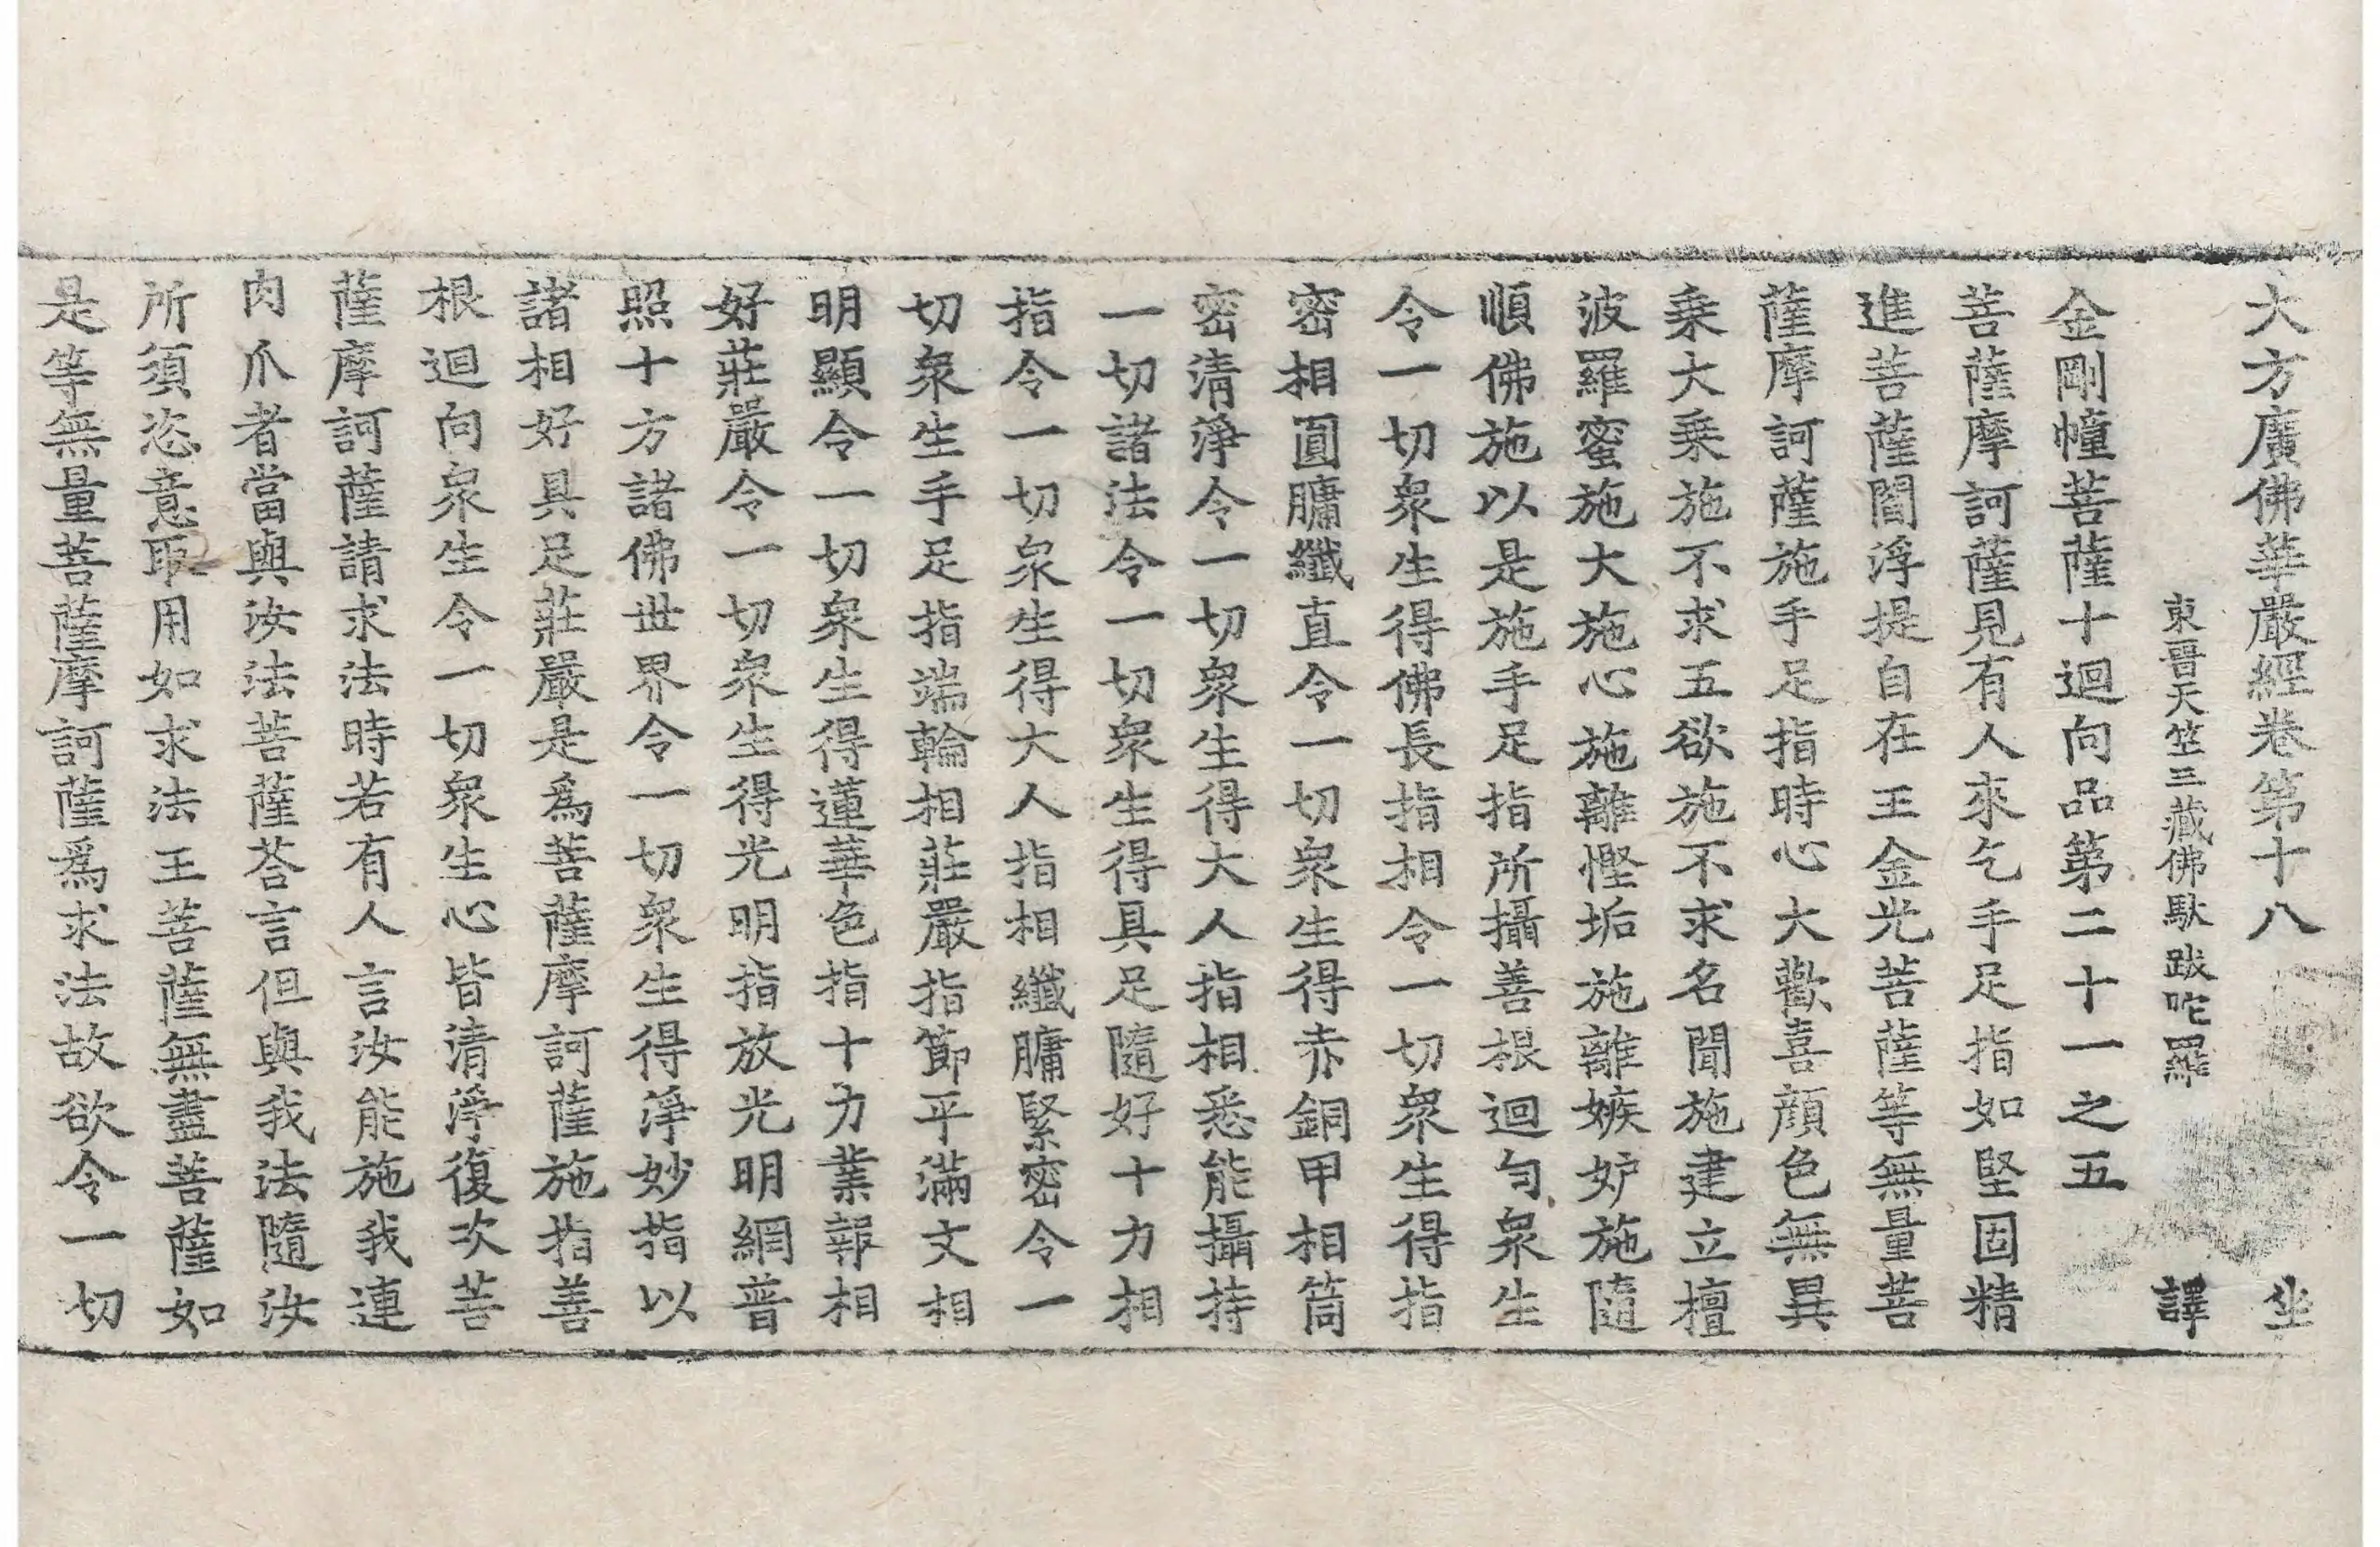 大方廣佛華嚴經卷第十八 坐
東晋天竺三藏佛馱跋咜羅 譯
金剛幢菩薩十迴向品第二十一之五
菩薩摩訶薩見有人來乞手足指如堅固精
進菩薩閻浮提自在王金光菩薩等無量菩
薩摩訶薩施手足指時心大歡喜顔色無異
乗大乗施不求五欲施不求名聞施建立檀
波羅蜜施大施心施離慳垢施離嫉妒施隨
順佛施以是施手足指所攝善根迴向衆生
令一切衆生得佛長指相令一切衆生得指
密相圓𦟛纖直令一切衆生得赤銅甲相筒
密清淨令一切衆生得大人指相悉能攝持
一切諸法令一切衆生得具足隨好十力相
指令一切衆生得大人指相纖𦟛緊密令一
切衆生手足指端輪相莊嚴指節平滿文相
明顯令一切衆生得蓮華色指十力業報相
好莊嚴令一切衆生得光明指放光明網普
照十方諸佛世界令一切衆生得淨妙指以
諸相好具足莊嚴是爲菩薩摩訶薩施指善
根迴向衆生令一切衆生心皆清淨復次菩
薩摩訶薩請求法時若有人言汝能施我連
肉爪者當與汝法菩薩荅言但與我法隨汝
所須恣意取用如求法王菩薩無盡菩薩如
是等無量菩薩摩訶薩爲求法故欲令一切